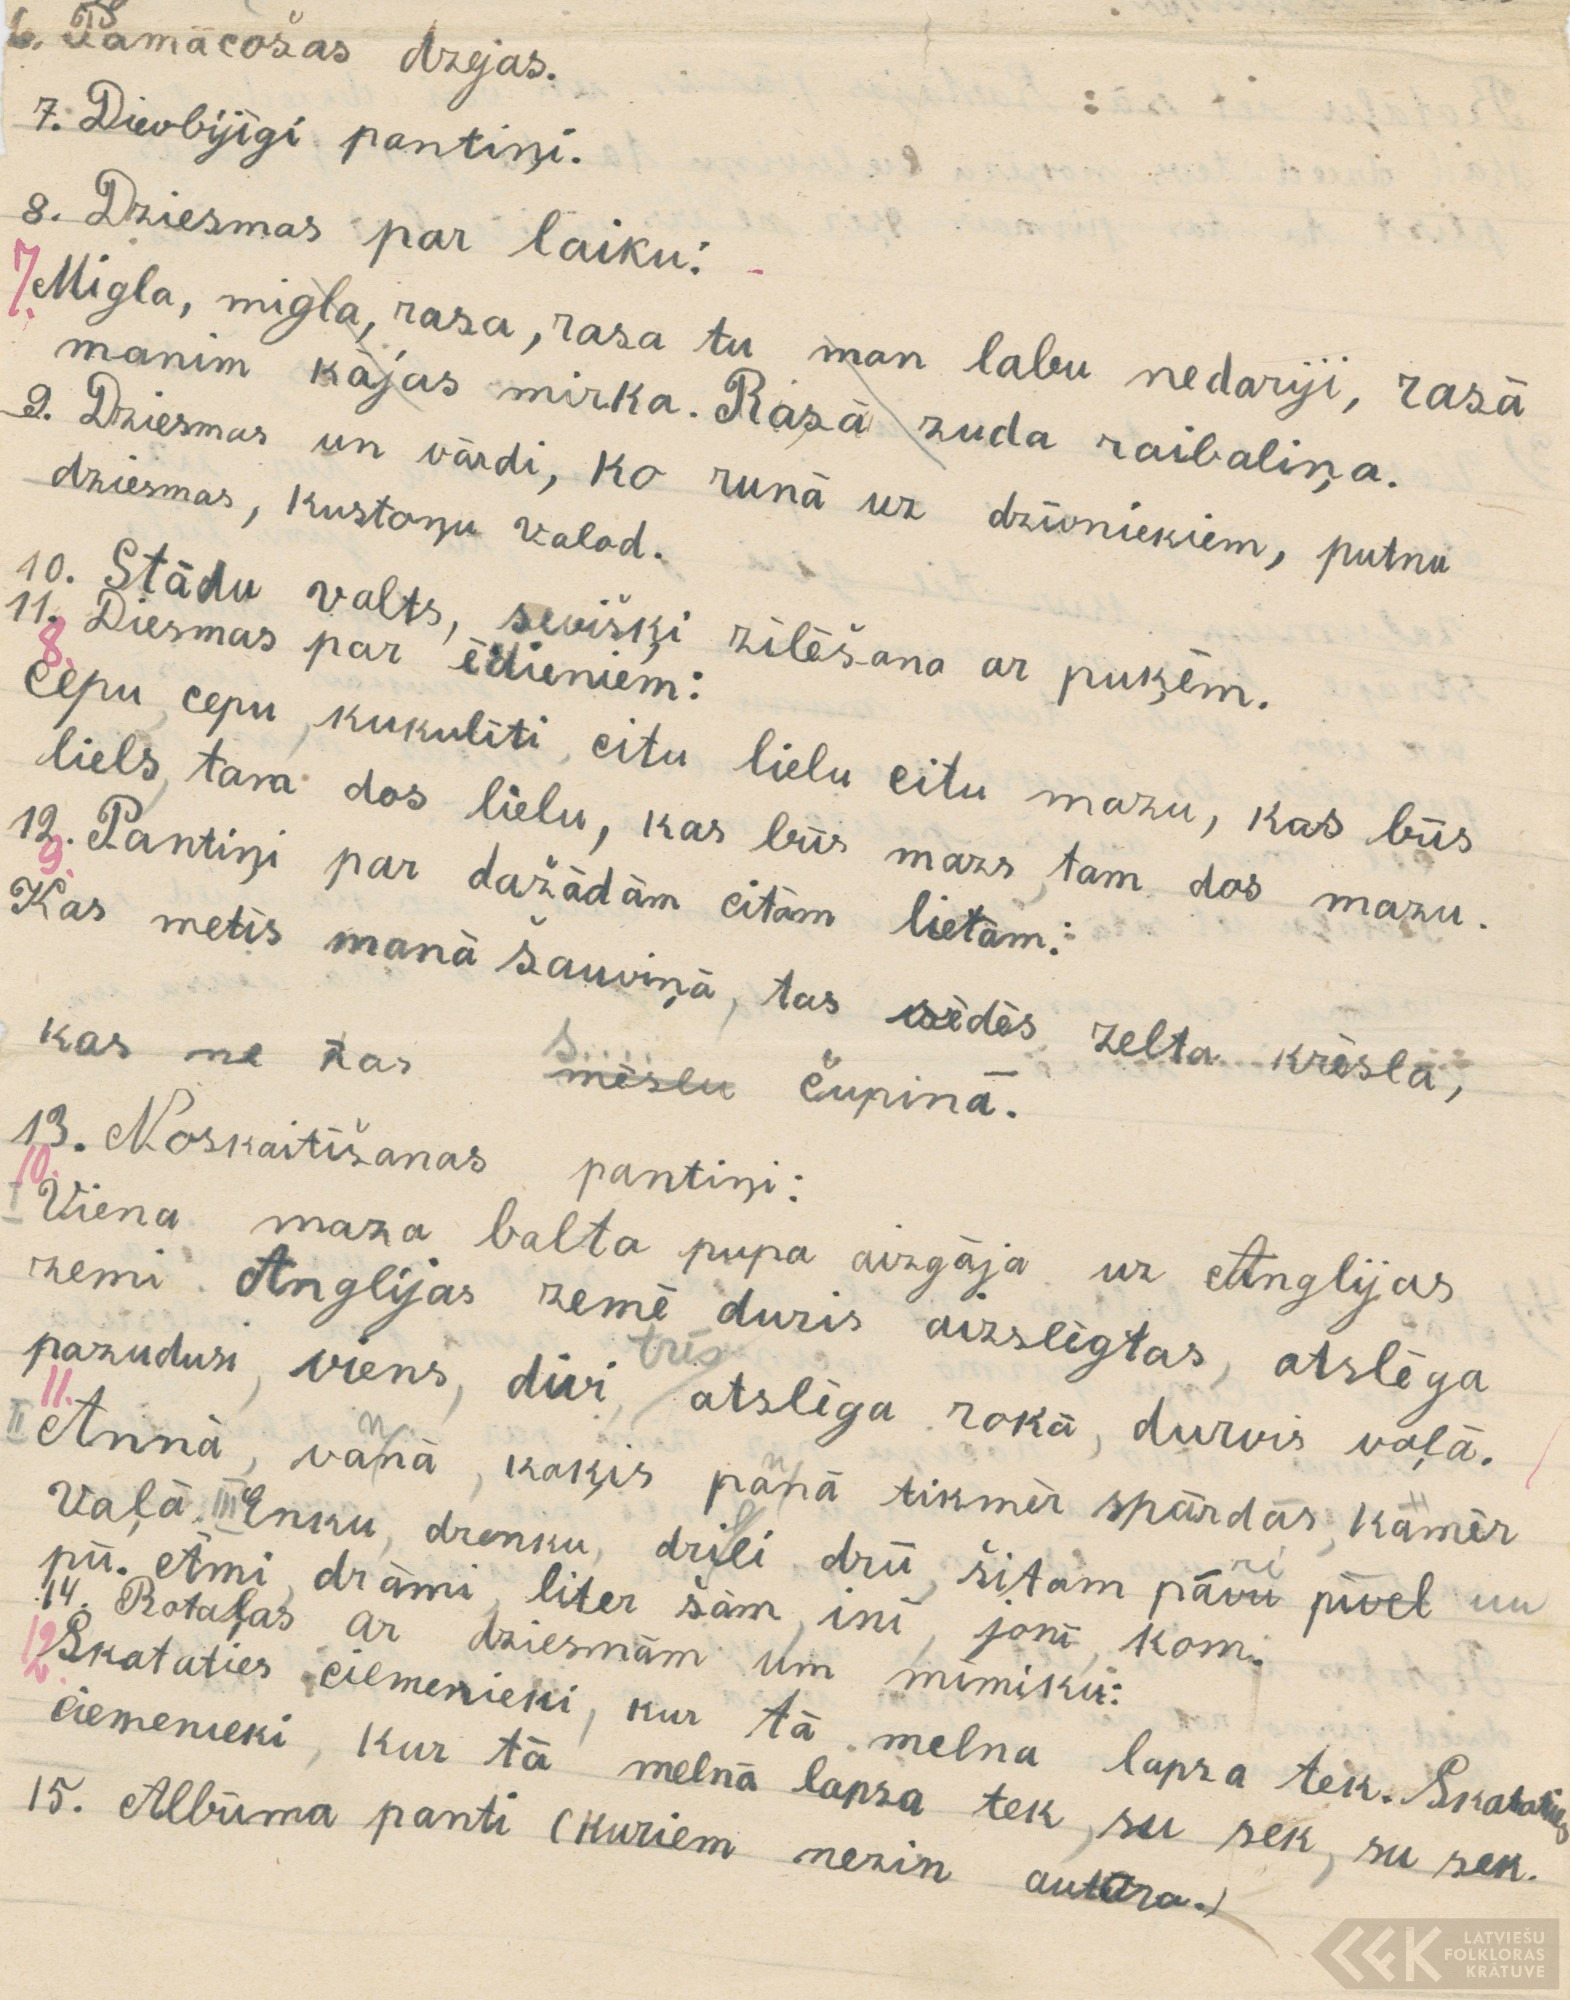 6. Pamācošas dzejas.
7. Dievbijīgi pantiņi.
8. Dziesmas par laiku:
7. Migla, migla, rasa, rasa tu man labu nedariji, rasā
manim kājas mirka. Rasā zuda raibaliņa.
9. Dziesmas un vārdi, ko runā uz dzīvniekiem, putnu
dziesmas, kustoņu valod.
10. Stādu valts, seviški zīlēšana ar puķēm.
11. Diesmas par ēdieniem:
8. Cepu, cepu, kukulīti, citu lielu citu mazu, kas būs
liels, tam dos lielu, kas būs mazs, tam dos mazu.
12. Pantiņi par dažādām citām lietām:
9. Kas metīs manā šauviņā, tas sēdēs zelta krēslā,
kas ne tas s..... mēslu čupinā.
13. Noskaitīšanas pantiņi:
10. I Viena maza balta pupa aizgāja uz Anglijas
zemi. Anglijas zemē duris aizslēgtas, atslēga
pazudusi, viens, divi, trīs atslēga rokā, durvis vaļā.
11. II Annā, vannā, kaķis pannā tikmēr spārdās, kāmēr
vaļā. III Enku, drenku, drilli drū, šitam pāvri pivel un
pū. Āmi, drāmi, liter šām, inī, jonī, kom.
14. Rotaļas ar dziesmām um mīmiku:
12. Skataties ciemenieki, kur tā melna lapsa tek. Skataties
ciemenieki, kur tā melnā lapsa tek, su sek, su sek.
15. Albūma panti (kuriem nezin autōra.)
LATVIEŠU
FOLKLORAS
KRĀTUVE